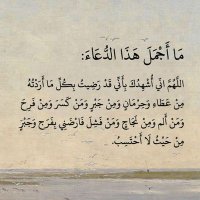 مَا أَجْمَلَ هَذَا الدُّعَاءَ:
اللَّهُمَّ إنِّي أُشْهِدُكَ بِأَنِّي قَدْ رَضِيتُ بِكُلِّ مَا أَرَدْتَهُ
مِنْ عَطَاءٍ وَحِرْمَانٍ وَمِنْ جَبْرٍ وَمَنْ كَسَرَ وَمِنْ فَرِحَ
وَمَنْ أَلَم وَمِنْ نَجَاحٍ وَمَنْ فَشِلَ فَارْضَنِي بِفَرَجٍ وَجَبْرٍ
مِنْ حَيْثُ لَا أَحْتَسِبُ.